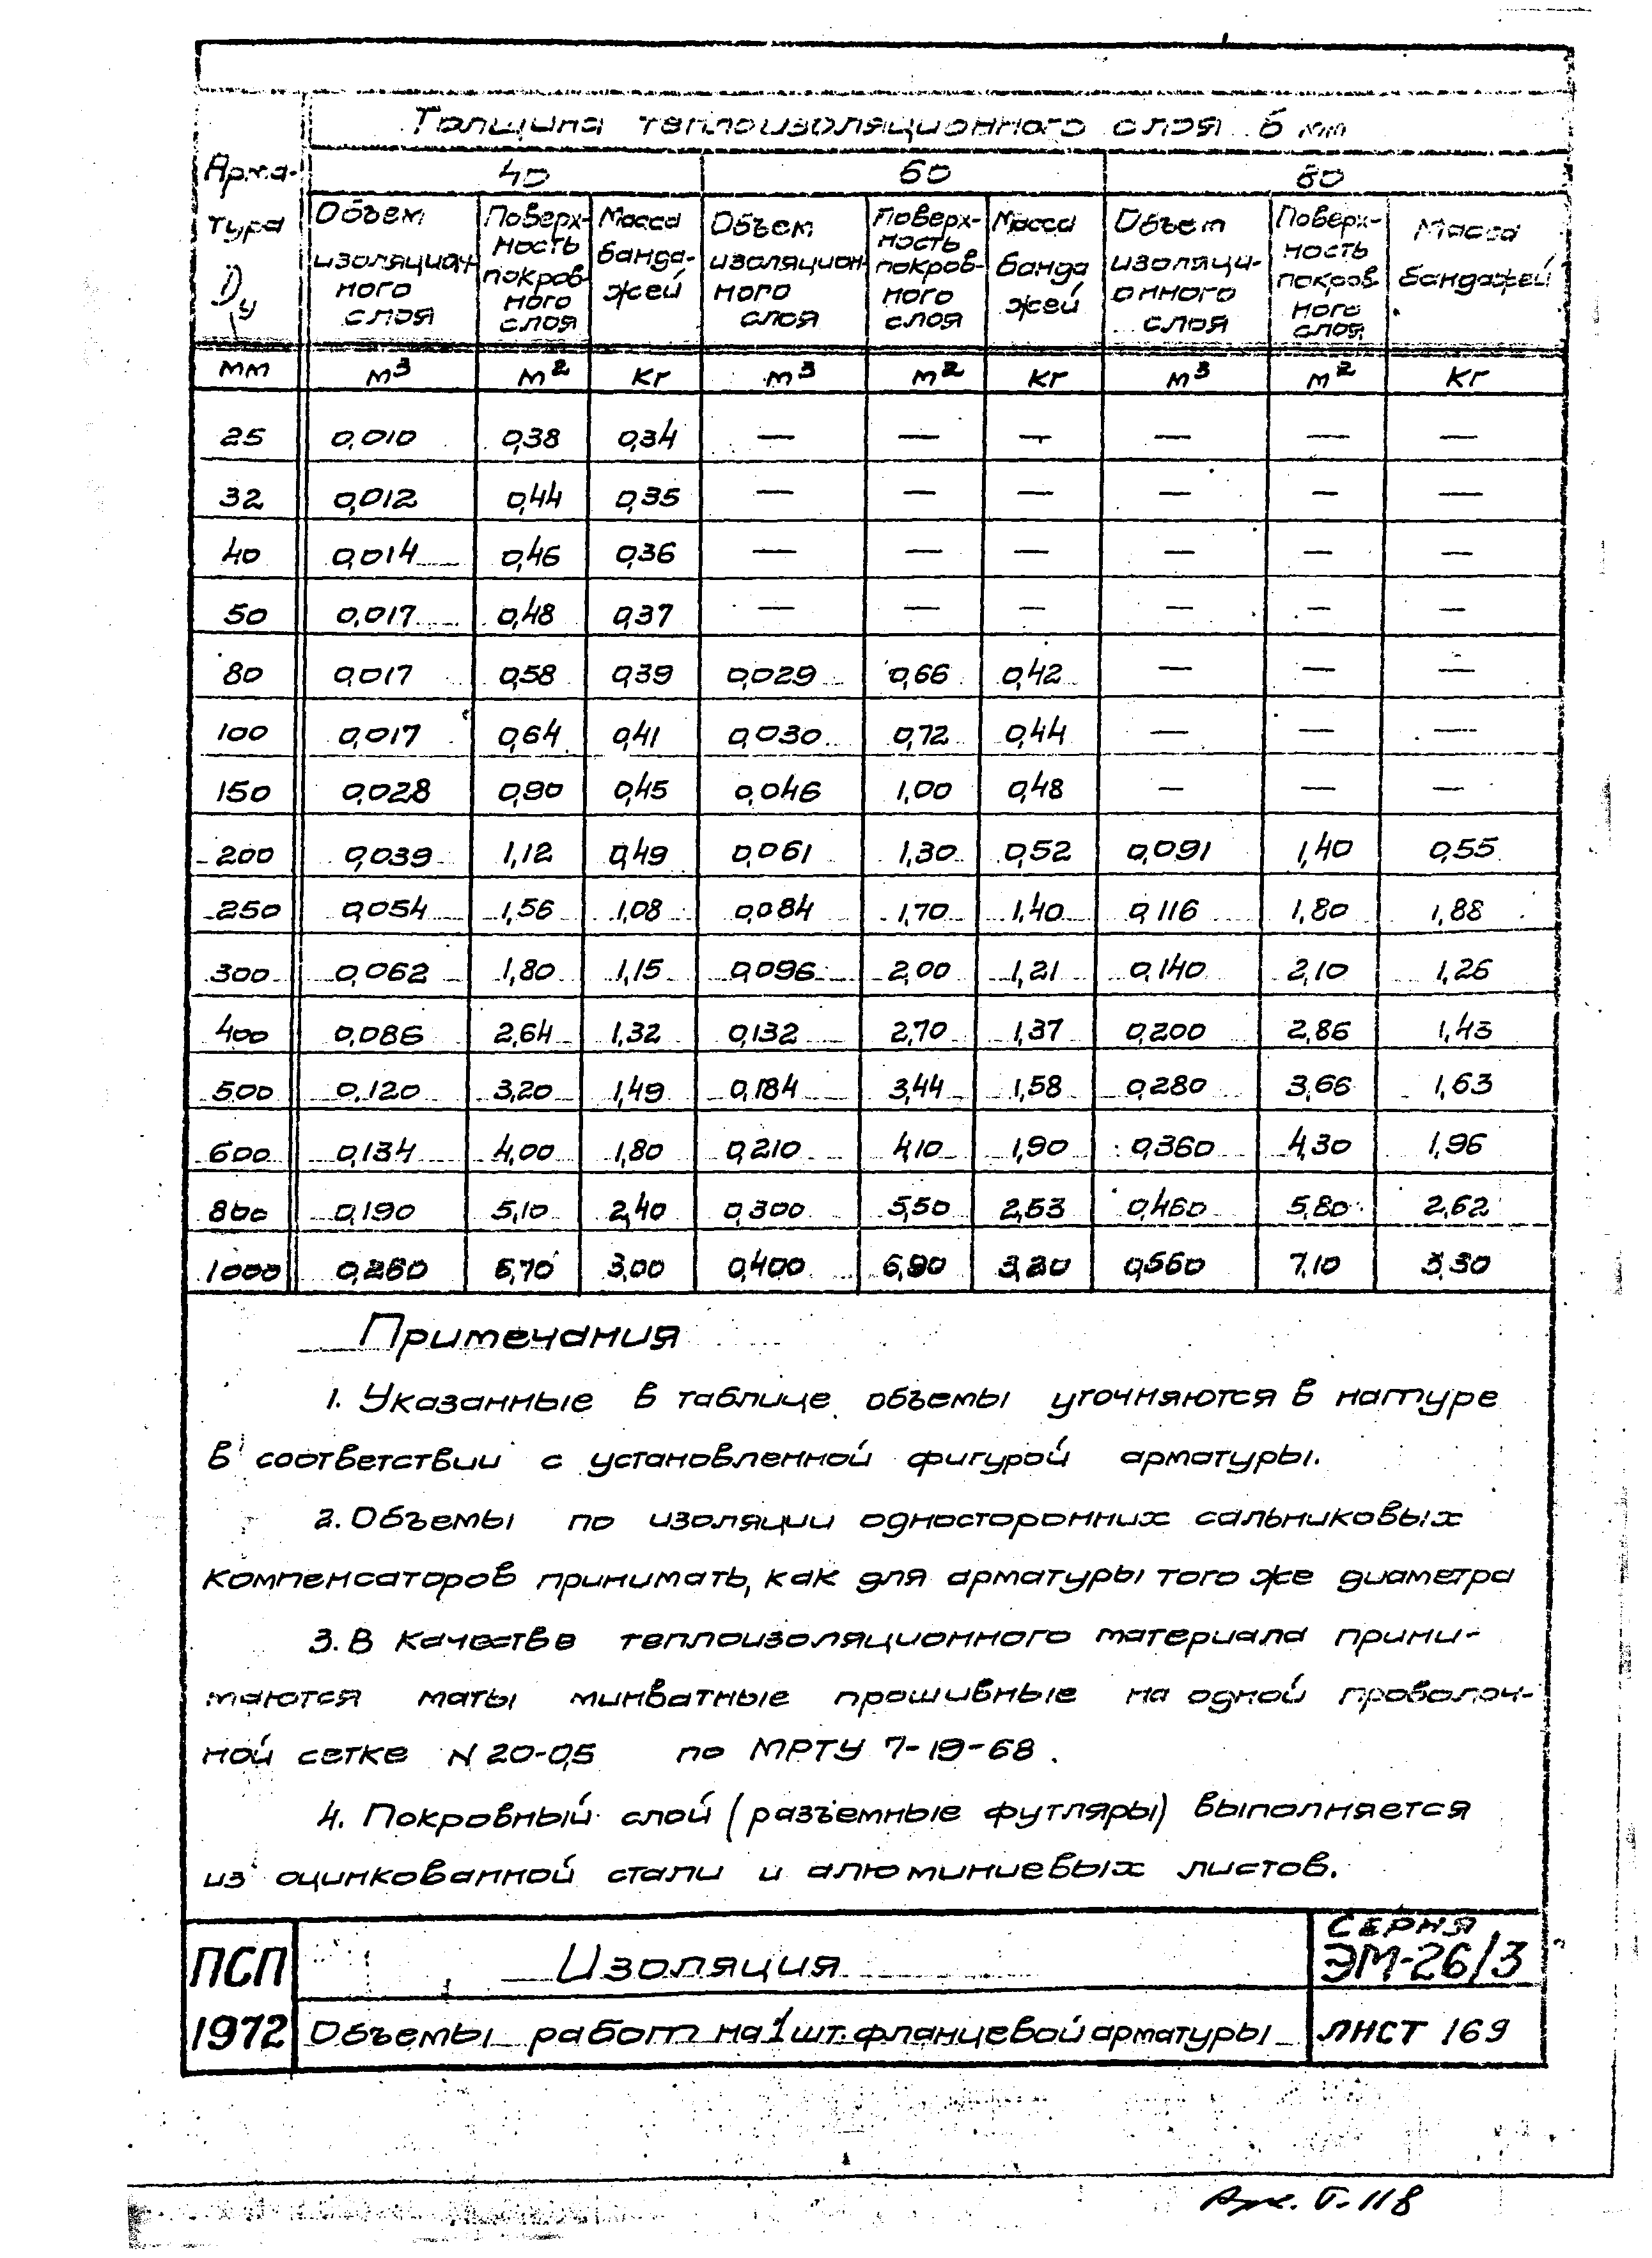 Толщина теплоизоляционного слоя б мм
Арма-
тура
Dу
40 60 80
Объем изоляцион ного слоя
Поверх- ность покров ного слоя
Масса банда- жей
Объем изоляцион ного слоя
Поверх- ность покров- ного слоя
Масса банда жей
Объем изоляци- онного слоя
Поверх- ность покров ного слоя
Масса бандажей
мм м³ м² кг м³ м² кг м³ м² кг
25 0,010 0,38 0,34 — — — — — —
32 0,012 0,44 0,35 — — — — — —
40 0,014 0,46 0,36 — — — — — —
50 0,017 0,48 0,37 — — — — — —
80 0,017 0,58 0,39 0,029 0,66 0,42 — — —
100 0,017 0,64 0,41 0,030 0,72 0,44 — — —
150 0,028 0,90 0,45 0,046 1,00 0,48 — — —
200 0,039 1,12 0,49 0,061 1,30 0,52 0,091 1,40 0,55
250 0,054 1,56 1,08 0,084 1,70 1,40 0,116 1,80 1,88
300 0,062 1,80 1,15 0,096 2,00 1,21 0,140 2,10 1,26
400 0,086 2,64 1,32 0,132 2,70 1,37 0,200 2,86 1,43
500 0,120 3,20 1,49 0,184 3,44 1,58 0,280 3,66 1,63
600 0,134 4,00 1,80 0,210 4,10 1,90 0,360 4,30 1,96
800 0,190 5,10 2,40 0,300 5,50 2,53 0,460 5,80 2,62
1000 0,260 6,70 3,00 0,400 6,90 3,20 0,560 7,10 3,30
Примечания
1. Указанные в таблице объемы уточняются в натуре
в соответствии с установленной фигурой арматуры.
2. Объемы по изоляции односторонних сальниковых
компенсаторов принимать, как для арматуры того же диаметра
3. В качестве теплоизоляционного материала прини-
маются маты минватные прошивные на одной проволоч-
ной сетке N 20-0,5 по МРТУ 7-19-68.
4. Покровный слой (разъемные футляры) выполняется
из оцинкованной стали и алюминиевых листов.
ПСП
1972
Изоляция
Объемы работ на 1 шт. фланцевой арматуры
СЕРИЯ
ЭМ-26/3
ЛИСТ 169